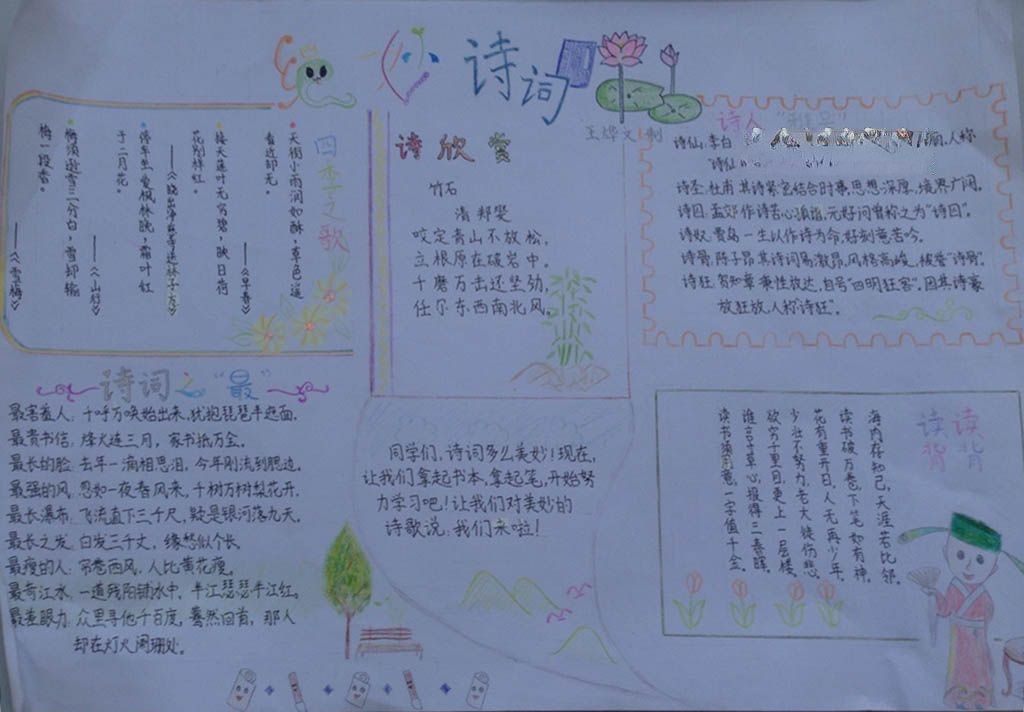 妙
诗词
王烨文制
四季之歌
天街小雨润如酥,草色遥
看近却无。
——《早春》
接天莲叶无穷碧,映日荷
花别样红。
——《晓出净慈寺送林子方》
停车坐爱枫林晚,霜叶红
于二月花。
——《山行》
梅须逊雪三分白,雪却输
梅一段香。
——《雪梅》
诗欣赏
竹石
清 郑燮
咬定青山不放松,
立根原在破岩中。
千磨万击还坚劲,
任尔东西南北风。
诗人“称号”
诗仙:李白
人称
诗仙
诗圣:杜甫 其诗紧密结合时事,思想深厚,境界广阔。
诗囚:孟郊 作诗苦心孤诣,元好问曾称之为“诗囚”。
诗奴:贾岛 一生以作诗为命,好刻意苦吟。
诗骨:陈子昂 其诗词昂激昂,风格高峻,被誉“诗骨”。
诗狂:贺知章 秉性放达,自号“四明狂客”。因其诗豪
放狂放,人称“诗狂”。
诗词之“最”
最害羞人:千呼万唤始出来,犹抱琵琶半遮面。
最贵书信:烽火连三月,家书抵万金。
最长的脸:去年一滴相思泪,今年刚流到腮边。
最强的风:忽如一夜春风来,千树万树梨花开。
最长瀑布:飞流直下三千尺,疑是银河落九天。
最长之发:白发三千丈,缘愁似个长。
最瘦的人:帘卷西风,人比黄花瘦。
最奇江水:一道残阳铺水中,半江瑟瑟半江红。
最差眼力:众里寻他千百度,蓦然回首,那人
却在灯火阑珊处。
同学们,诗词多么美妙!现在,
让我们拿起书本,拿起笔,开始努
力学习吧!让我们对美妙的
诗歌说:我们来啦!
读读
背背
海内存知己,天涯若比邻。
读书破万卷,下笔如有神。
花有重开日,人无再少年。
少壮不努力,老大徒伤悲。
欲穷千里目,更上一层楼。
谁言寸草心,报得三春晖。
读书须用意,一字值千金。